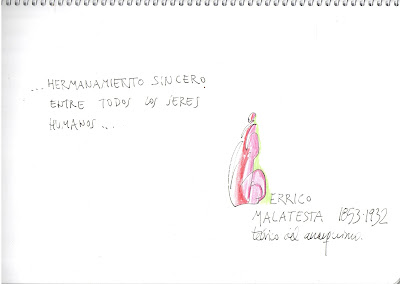 ...HERMANAMIENTO SINCERO
ENTRE TODOS LOS SERES
HUMANOS...
ERRICO
MALATESTA 1853-1932
teórico del anarquismo.